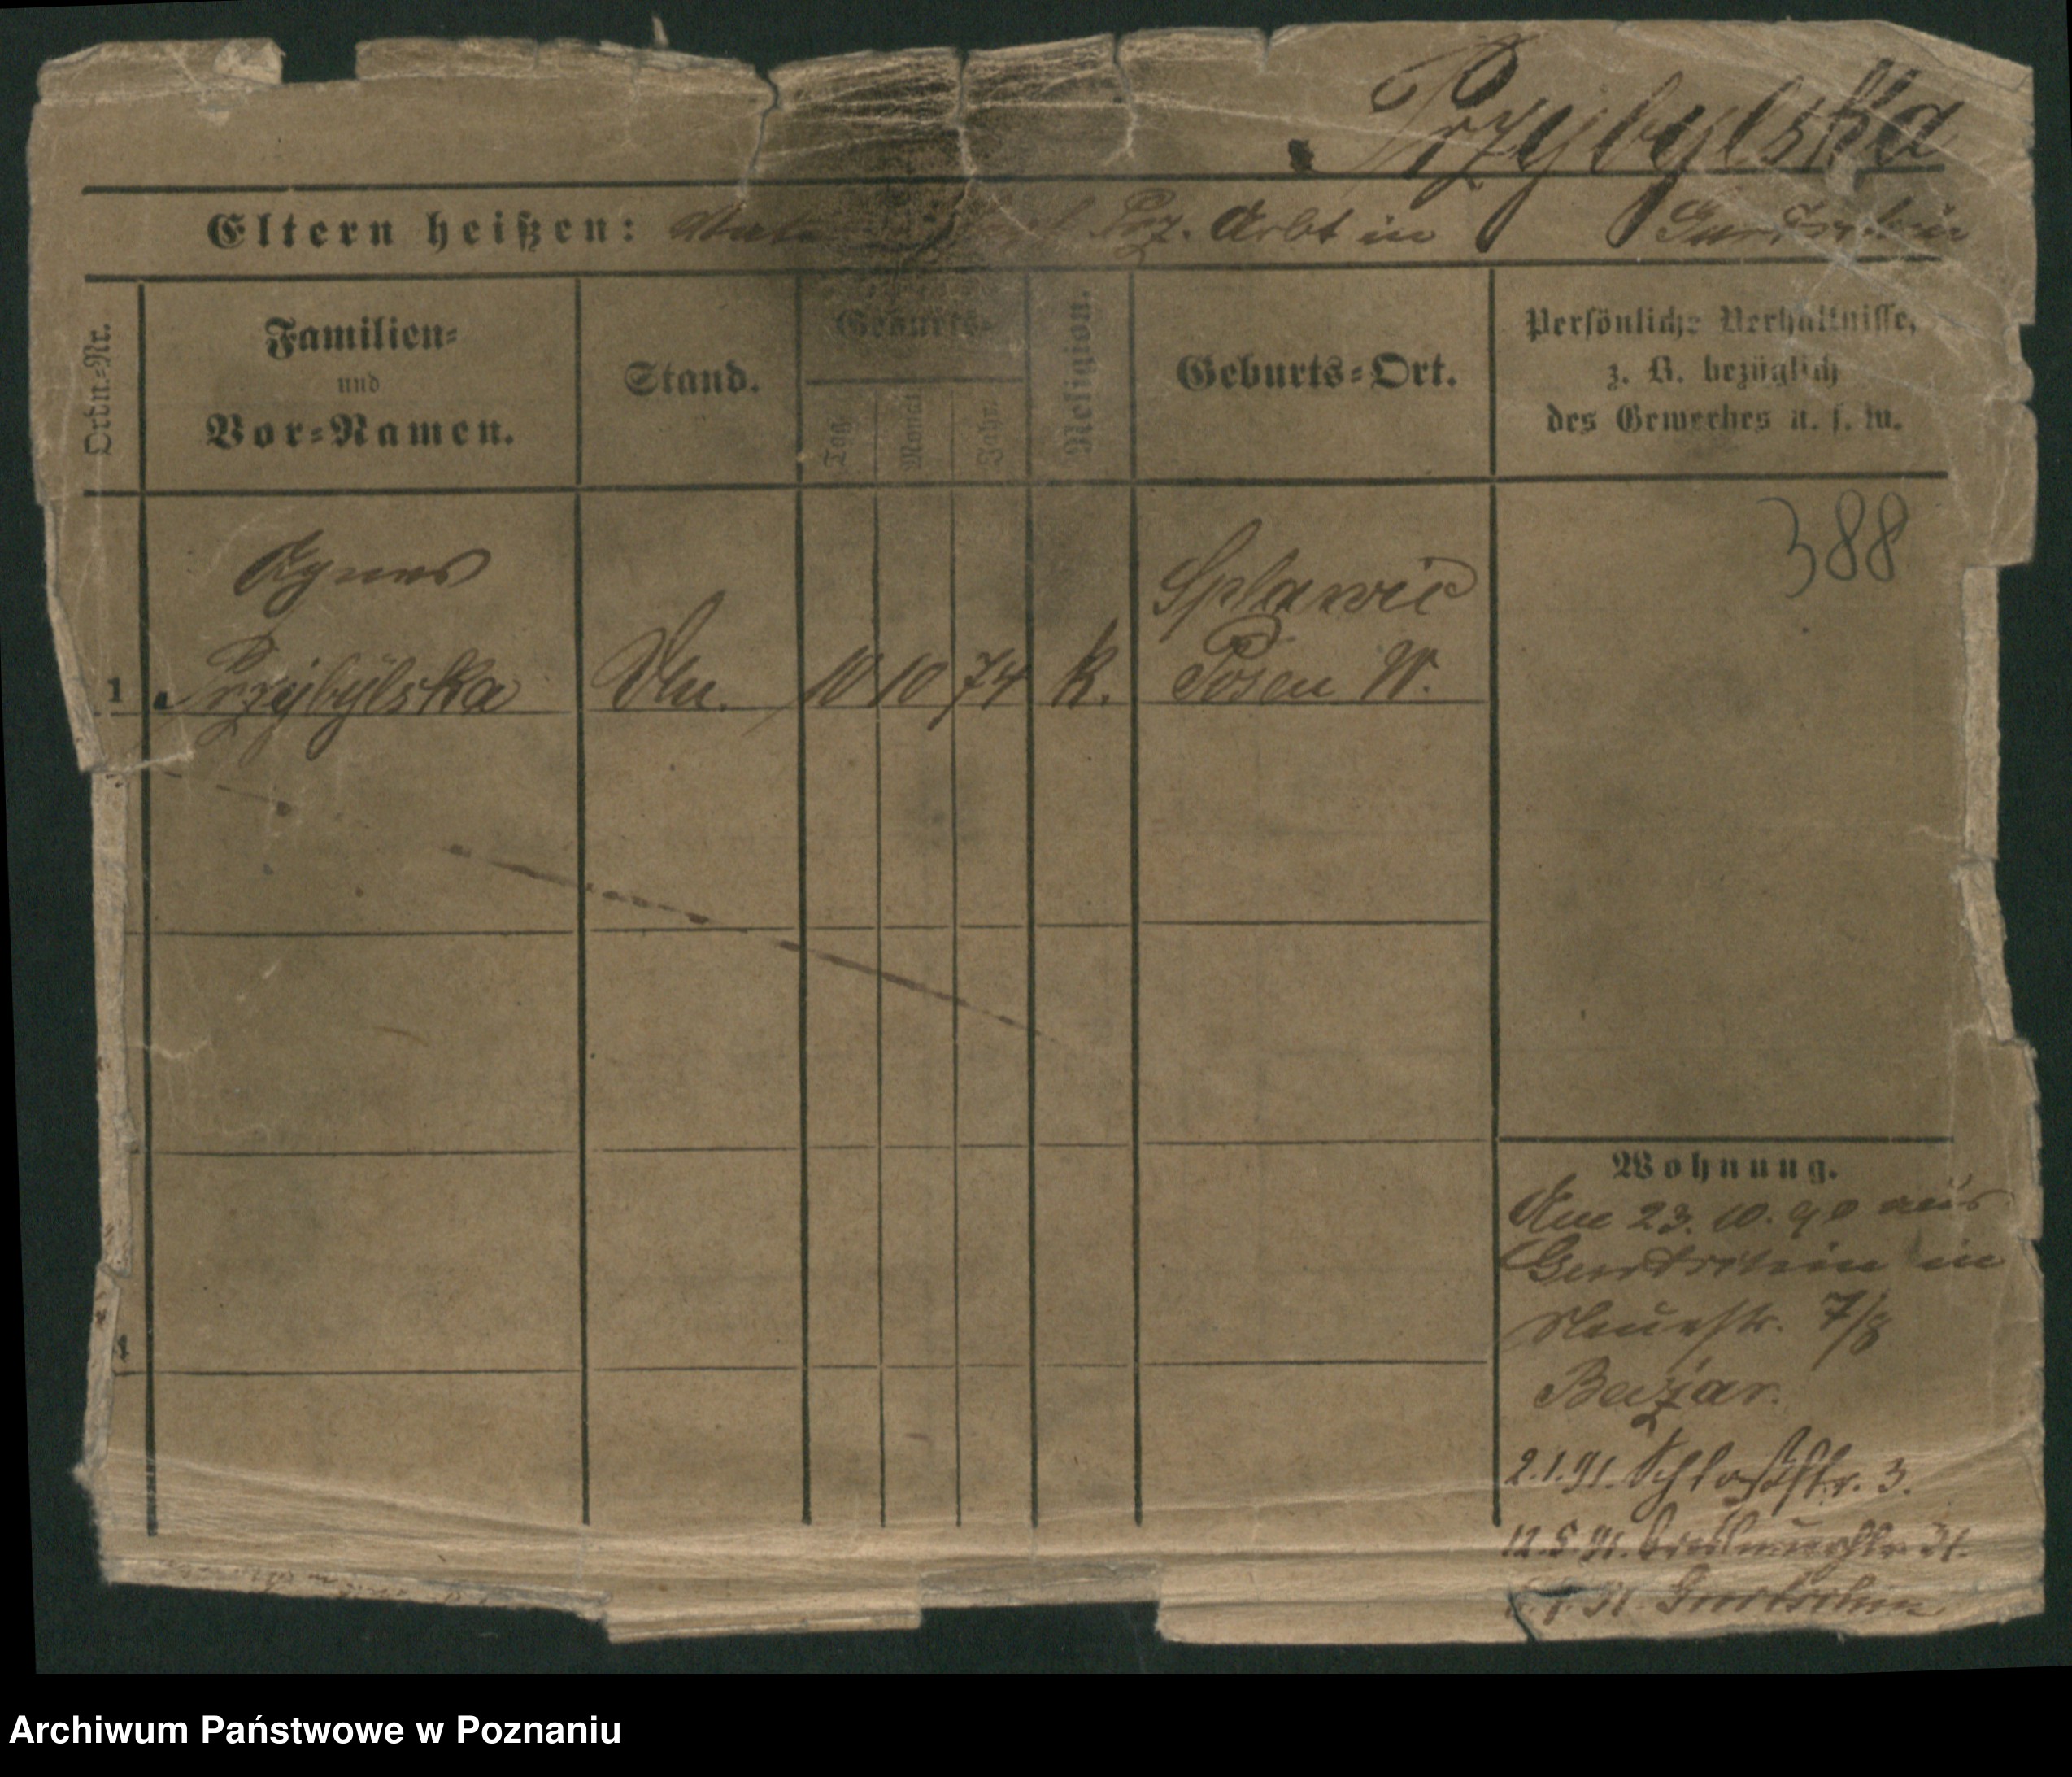 Przybylska
Eltern heißen: Vater Prz. Arbt in Gurtschin
Ordn.-Nr.
Familien-
und
Vor-Namen.
Stand.
Geburts-
Tag
Monat
Jahr.
Religion.
Geburts-Ort.
Persönliche Verhältnisse,
z. B. bezüglich
des Gewerbes u. s. w.
388
Agnes
Splawie
1 Przybylska 10 10 74 k. Posen W.
Wohnung.
Am 23. 10. 90 aus
Gurtschin in
Neuestr. 7/8
Bazar.
2.1.91. Schloßstr. 3.
91. Gurtschin
Archiwum Państwowe w Poznaniu